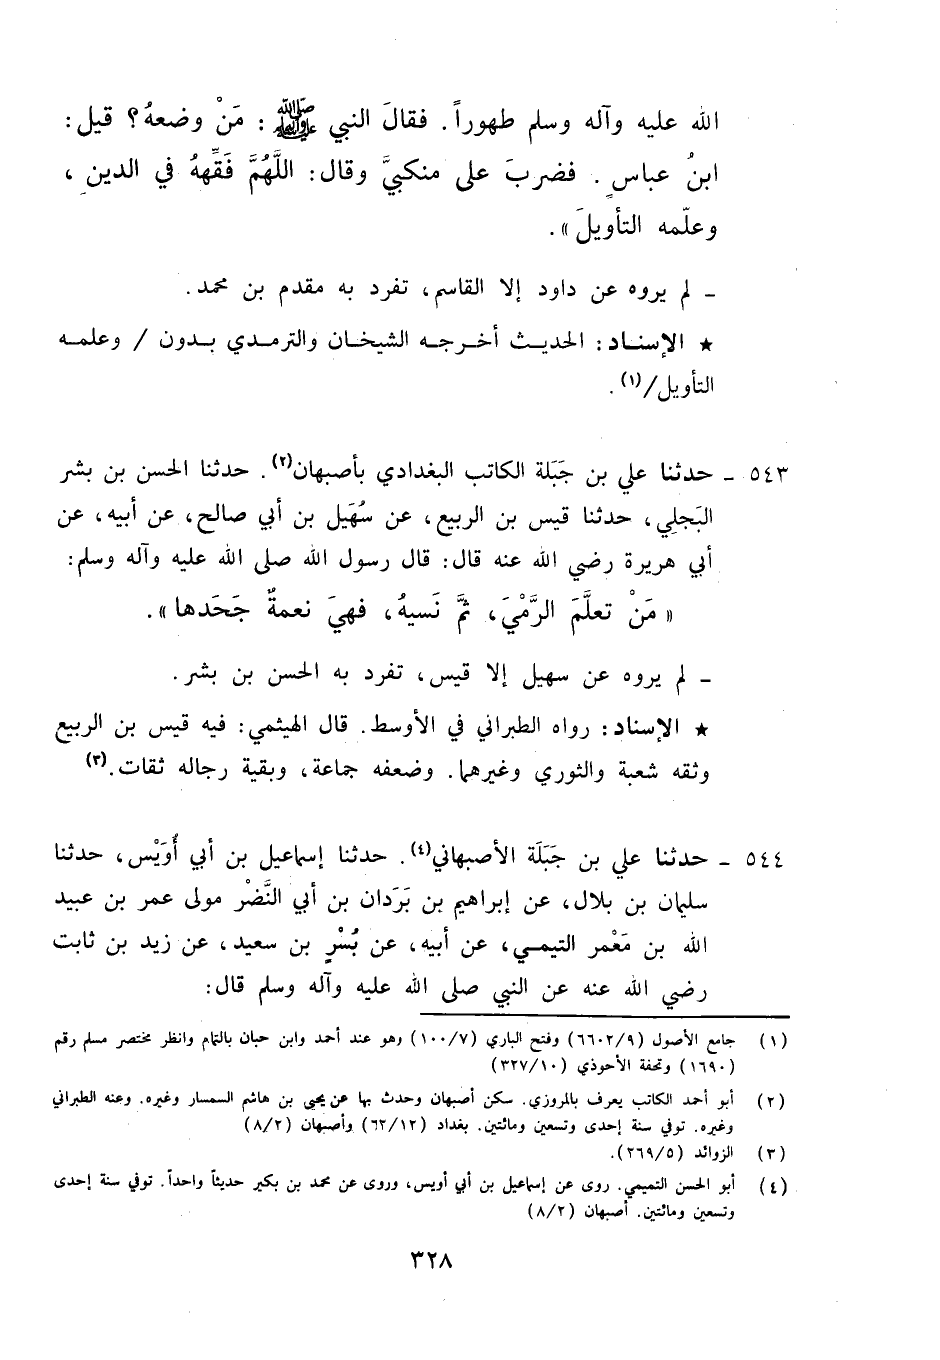 الله عليه وآله وسلم طهوراً. فقالَ النبي ﷺ : مَنْ وضعهُ؟ قيل:
ابنُ عباسٍ . فضربَ على منكبيَّ وقال: اللَّهُمَّ فَقِّههُ في الدينِ ،
وعلّمه التأويلَ».
ـ لم يروه عن داود إلا القاسم، تفرد به مقدم بن محمد.
★ الإسناد: الحديث أخرجه الشيخان والترمدي بدون / وعلمه
التأويل/(١).
٥٤٣ ـ حدثنا علي بن جَبَلة الكاتب البغدادي بأصبهان(٢). حدثنا الحسن بن بشر
البَجلِي، حدثنا قيس بن الربيع، عن سُهَيل بن أبي صالح، عن أبيه، عن
أبي هريرة رضي الله عنه قال: قال رسول الله صلى الله عليه وآله وسلم:
« مَنْ تعلَّمَ الرَّمْيَ، ثمَّ نَسيهُ، فهيَ نعمةٌ جَحَدها ».
ـ لم يروه عن سهيل إلا قيس، تفرد به الحسن بن بشر.
★ الإسناد: رواه الطبراني في الأوسط. قال الهيثمي: فيه قيس بن الربيع
وثقه شعبة والثوري وغيرهما. وضعفه جماعة، وبقية رجاله ثقات.(٣)
٥٤٤ ـ حدثنا علي بن جَبَلَة الأصبهاني(٤). حدثنا إسماعيل بن أبي أُوَيْس، حدثنا
سليمان بن بلال، عن إبراهيم بن بَرَدان بن أبي النَّضْر مولى عمر بن عبيد
الله بن مَعْمر التيمي، عن أبيه، عن بُسْرٍ بن سعيد، عن زيد بن ثابت
رضي الله عنه عن النبي صلى الله عليه وآله وسلم قال:
(١) جامع الأصول (٦٦٠٢/٩) وفتح الباري (١٠٠/٧) وهو عند أحمد وابن حبان بالتمام وانظر مختصر مسلم رقم
(١٦٩٠) وتحفة الأحوذي (٣٢٧/١٠)
(٢) أبو أحمد الكاتب يعرف بالمروزي. سكن أصبهان وحدث بها عن يحيى بن هاشم السمسار وغيره. وعنه الطبراني
وغيره. توفي سنة إحدى وتسعين ومائتين. بغداد (٦٢/١٢) وأصبهان (٨/٢)
(٣) الزوائد (٢٦٩/٥).
(٤) أبو الحسن التميمي. روى عن إسماعيل بن أبي أويس، وروى عن محمد بن بكير حديثاً واحداً. توفي سنة إحدى
وتسعين ومائتين. أصبهان (٨/٢)
٣٢٨